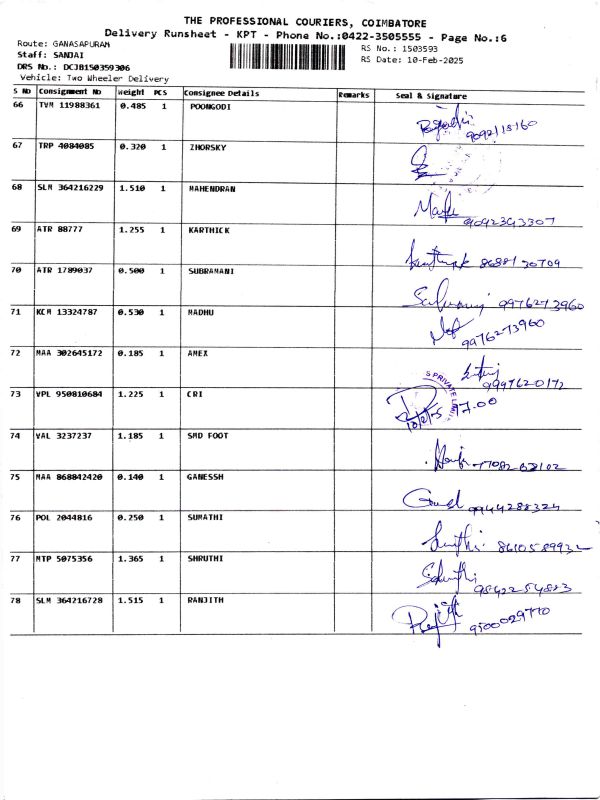 THE PROFESSIONAL COURIERS, COIMBATORE
Delivery Runsheet - KPT - Phone No.:0422-3505555 - Page No.:6
Route: GANASAPURAM
RS No.: 1503593
Staff: SANJAI
RS Date: 10-Feb-2025
DRS No.: DCJB150359306
Vehicle: Two Wheeler Delivery
S No Consignment No Weight PCS Consignee Details Remarks Seal & Signature
66 TVM 11988361 0.485 1 POONGODI
9092118160
67 TRP 4084085 0.320 1 ZHORSKY
68 SLM 364216229 1.510 1 MAHENDRAN
9042343307
69 ATR 88777 1.255 1 KARTHICK
8688130709
70 ATR 1789037 0.500 1 SUBRAMANI
9976273960
71 KCM 13324787 0.530 1 MADHU
9976273960
72 MAA 302645172 0.185 1 AMEX
9997620172
73 VPL 950810684 1.225 1 CRI
S PRIVATE LIMI
10/2/25 17.00
74 VAL 3237237 1.185 1 SMD FOOT
75 MAA 868842420 0.140 1 GANESSH
9944288324
76 POL 2044816 0.250 1 SUMATHI
8610589932
77 MTP 5075356 1.365 1 SHRUTHI
9842254883
78 SLM 364216728 1.515 1 RANJITH
9500029770